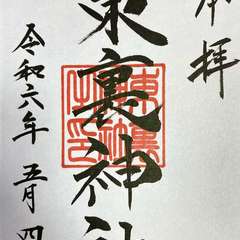 奉拝
東裏神社
令和六年 五月 四